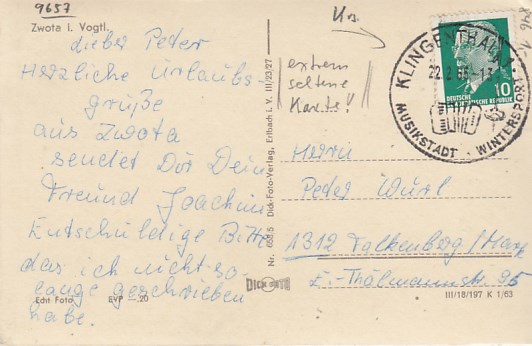 9657
Zwota i. Vogtl.
Lieber Peter
Herzliche Urlaubs-
grüße
aus Zwota
sendet Dir Dein
Freund Joachim
Entschuldige Bitte
das ich nicht so
lange geschrieben
habe.
Echt Foto EVP -20
Nr. 658.5 Dick-Foto-Verlag, Erlbach i. V. III/23/27
extrem
seltene
Karte!!
KLINGENTHAL
22.2.65-13
MUSIKSTADT · WINTERSPORT
DEUTSCHE
DEMOKRATISCHE REPUBLIK
10
Herrn
Peter Wurl
1312 Falkenberg/Mark
E.-Thälmannstr. 95
DICK FOTO
III/18/197 K 1/63